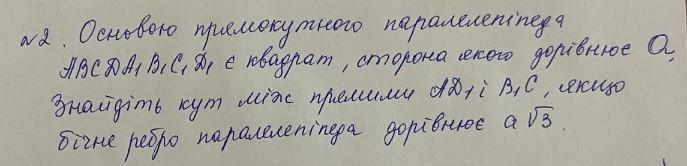 №2. Основою прямокутного паралелепіпеда
ABCDA₁B₁C₁D₁ є квадрат, сторона якого дорівнює a.
Знайдіть кут між прямими AD₁ і B₁C, якщо
бічне ребро паралелепіпеда дорівнює a√3.